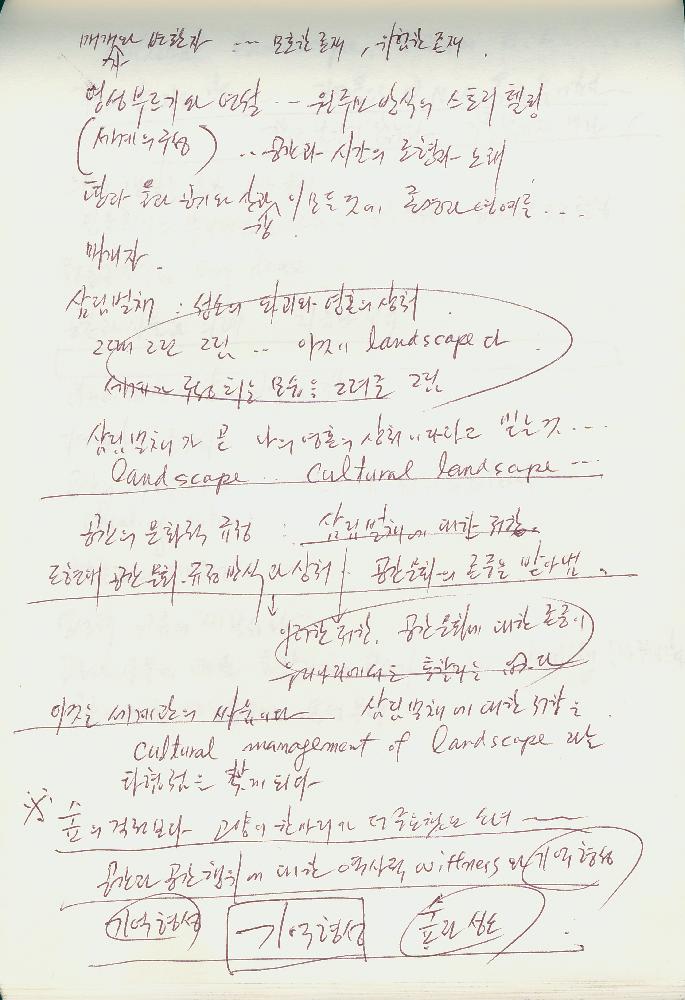 매개와 변환자 … 모호한 존재, 위험한 존재.
자
형성부르기와 연설 … 원주민 방식의 스토리 텔링
(세계의 구성) … 공간과 시간의 조형과 노래
물과 공기와 이 모든 것이
매개자.
삼림벌채 : 성소의 파괴와 영혼의 상처
그때 그린 그림 … 이것이 landscape 다
세계가 구성되는 모습을 그려준 그림
삼림벌채가 곧 나의 영혼의 상처이다라고 믿는 것 …
landscape … cultural landscape …
공간의 문화적 규정 : 삼림벌채에 대한 저항.
공간문화 규정방식과 상처 공간문화의 존중을 받아냄.
이러한 저항, 공간문화에 대한 존중이
우리나라에서는 통하지는 않는다
이것은 세계관의 싸움이다 삼림벌채에 대한 저항은
cultural management of landscape 라는
타협점을 찾게 되다
※ 숲의 격전보다 고양이 한마리가 더 중요했던 소녀
공간과 공간행위에 대한 역사적 wittness와 기억형성
기억형성 기억형성 숲과 성소